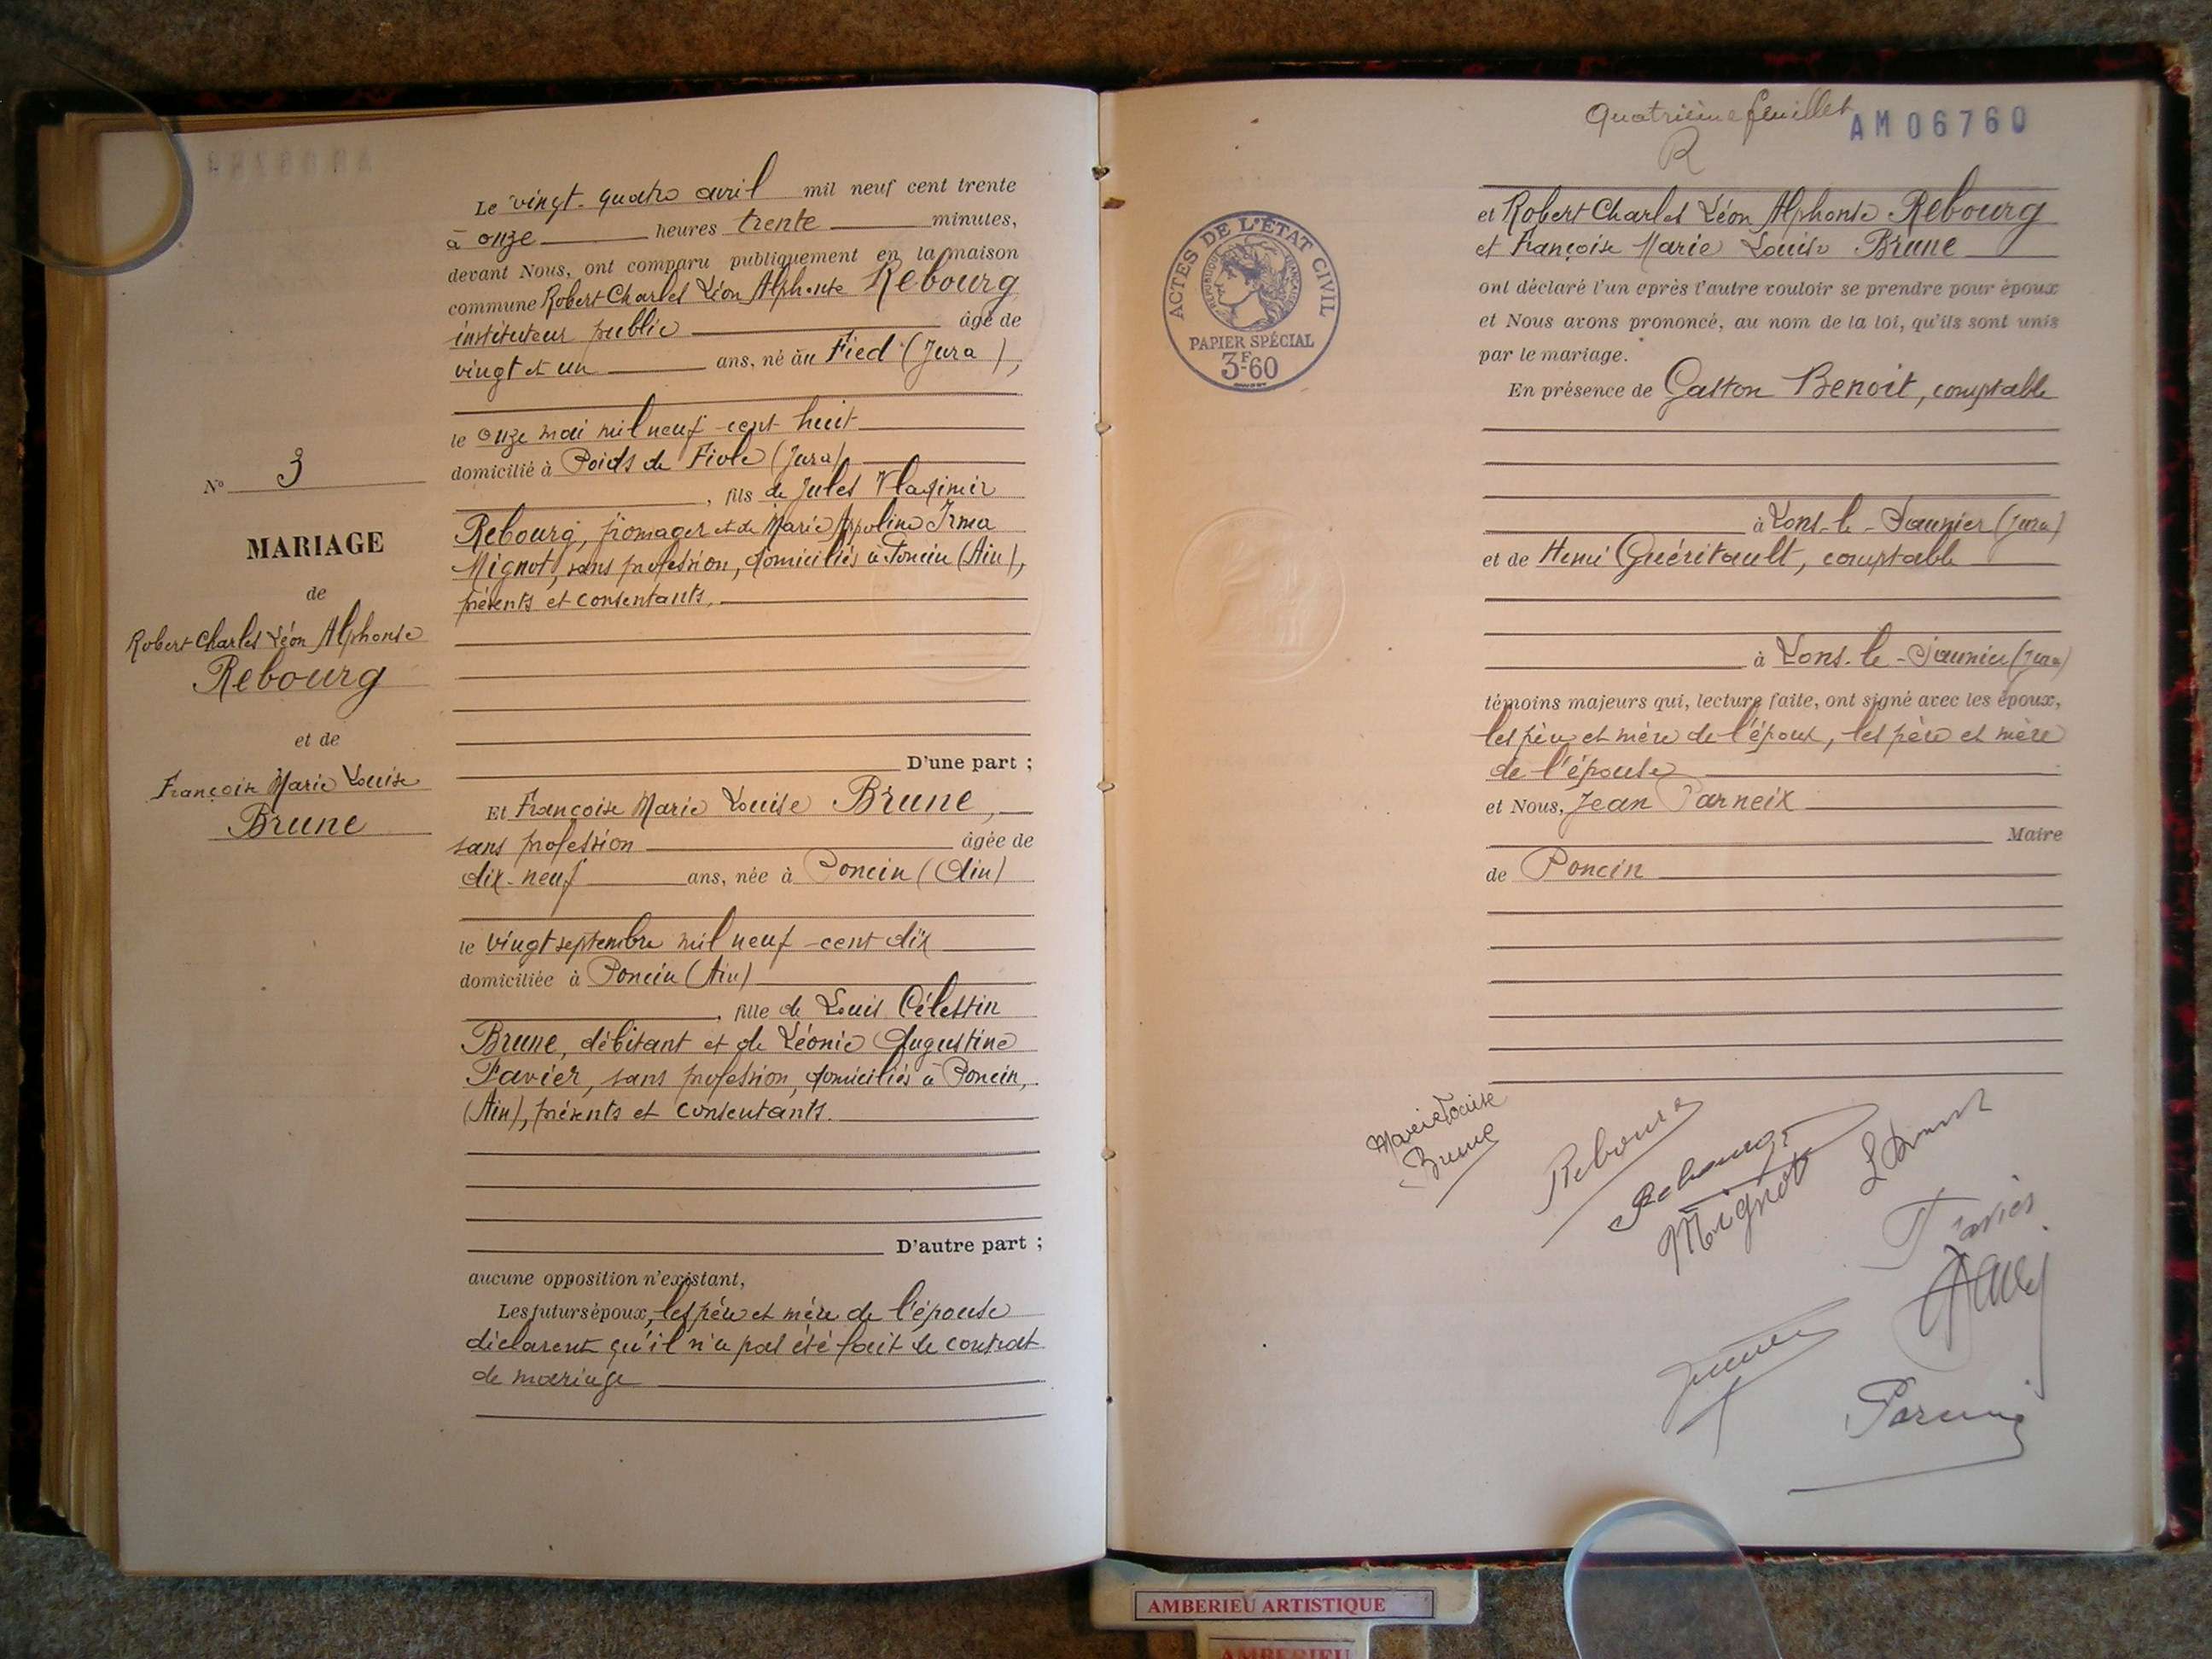 N° 3
MARIAGE
de
Robert Charles Léon Alphonse
Rebourg
et de
Françoise Marie Louise
Brune
Le vingt-quatre avril mil neuf cent trente
à onze heures trente minutes,
devant Nous, ont comparu publiquement en la maison
commune Robert Charles Léon Alphonse Rebourg
instituteur public âgé de
vingt et un ans, né au Fied (Jura),
le onze mai mil neuf-cent huit
domicilié à Poids de Fiole (Jura)
, fils de Jules Vladimir
Rebourg, fromager et de Marie Appoline Irma
Mignot, sans profession, domiciliés à Poncin (Ain),
présents et consentants.
D'une part ;
Et Françoise Marie Louise Brune,
sans profession âgée de
dix-neuf ans, née à Poncin (Ain)
le vingt septembre mil neuf-cent dix
domiciliée à Poncin (Ain)
, fille de Louis Célestin
Brune, débitant et de Léonie Augustine
Favier, sans profession, domiciliés à Poncin,
(Ain), présents et consentants.
D'autre part ;
aucune opposition n'existant,
Les futurs époux, les père et mère de l'épouse
déclarent qu'il n'a pas été fait de contrat
de mariage
Quatrième feuillet AM06760
R
ACTES DE L'ÉTAT CIVIL
RÉPUBLIQUE FRANÇAISE
PAPIER SPÉCIAL
3F60
et Robert Charles Léon Alphonse Rebourg
et Françoise Marie Louise Brune
ont déclaré l'un après l'autre vouloir se prendre pour époux
et Nous avons prononcé, au nom de la loi, qu'ils sont unis
par le mariage.
En présence de Gaston Benoit, comptable
à Lons-le-Saunier (Jura)
et de Henri Guéritault, comptable
à Lons-le-Saunier (Jura)
témoins majeurs qui, lecture faite, ont signé avec les époux,
les père et mère de l'époux, les père et mère
de l'épouse
et Nous, Jean Parneix
Maire
de Poncin
Marie Louise
Brune
Rebourg
Rebourg
Mignot
L Brune
Favier
Parneix
AMBERIEU ARTISTIQUE
AMBERIEU